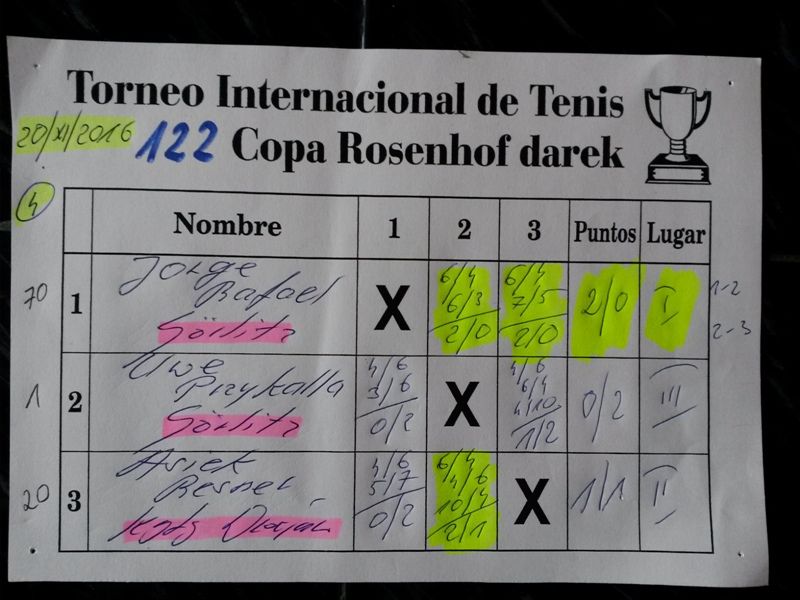 Torneo Internacional de Tenis
20/XI/2016 122 Copa Rosenhof darek
4
Nombre 1 2 3 Puntos Lugar
70 1 Jorge Rafael Görlitz X 6/4 6/3 2/0 6/4 7/5 2/0 2/0 I 1-2 2-3
1 2 Uwe Przykalla Görlitz 4/6 3/6 0/2 X 4/6 6/4 4/10 1/2 0/2 III
20 3 4/6 5/7 0/2 6/4 4/6 10/4 2/1 X 1/1 II